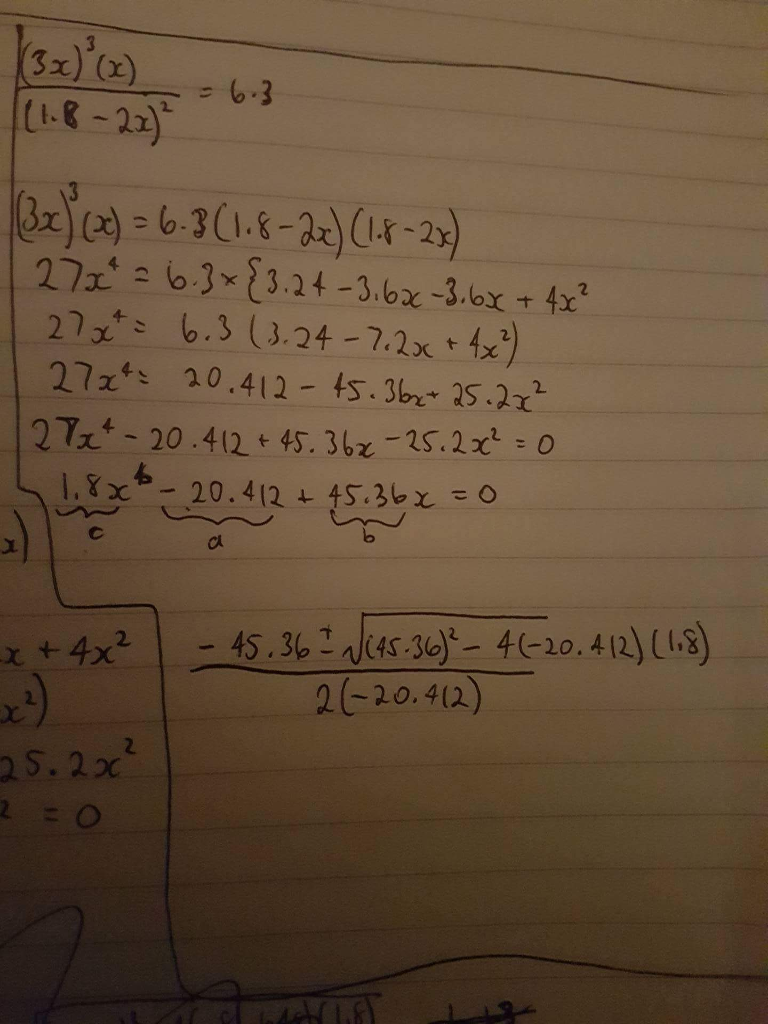 (3x)³(x)
/(1.8 - 2x)² = 6.3
(3x)³(x) = 6.3(1.8 - 2x)(1.8 - 2x)
27x⁴ = 6.3 × {3.24 - 3.6x - 3.6x + 4x²
27x⁴ = 6.3 (3.24 - 7.2x + 4x²)
27x⁴ = 20.412 - 45.36x + 25.2x²
27x⁴ - 20.412 + 45.36x - 25.2x² = 0
1.8x⁶ - 20.412 + 45.36x = 0
c a b
x)
x + 4x²
x²)
25.2x²
² = 0
- 45.36 ± √(45.36)² - 4(-20.412)(1.8)
2(-20.412)